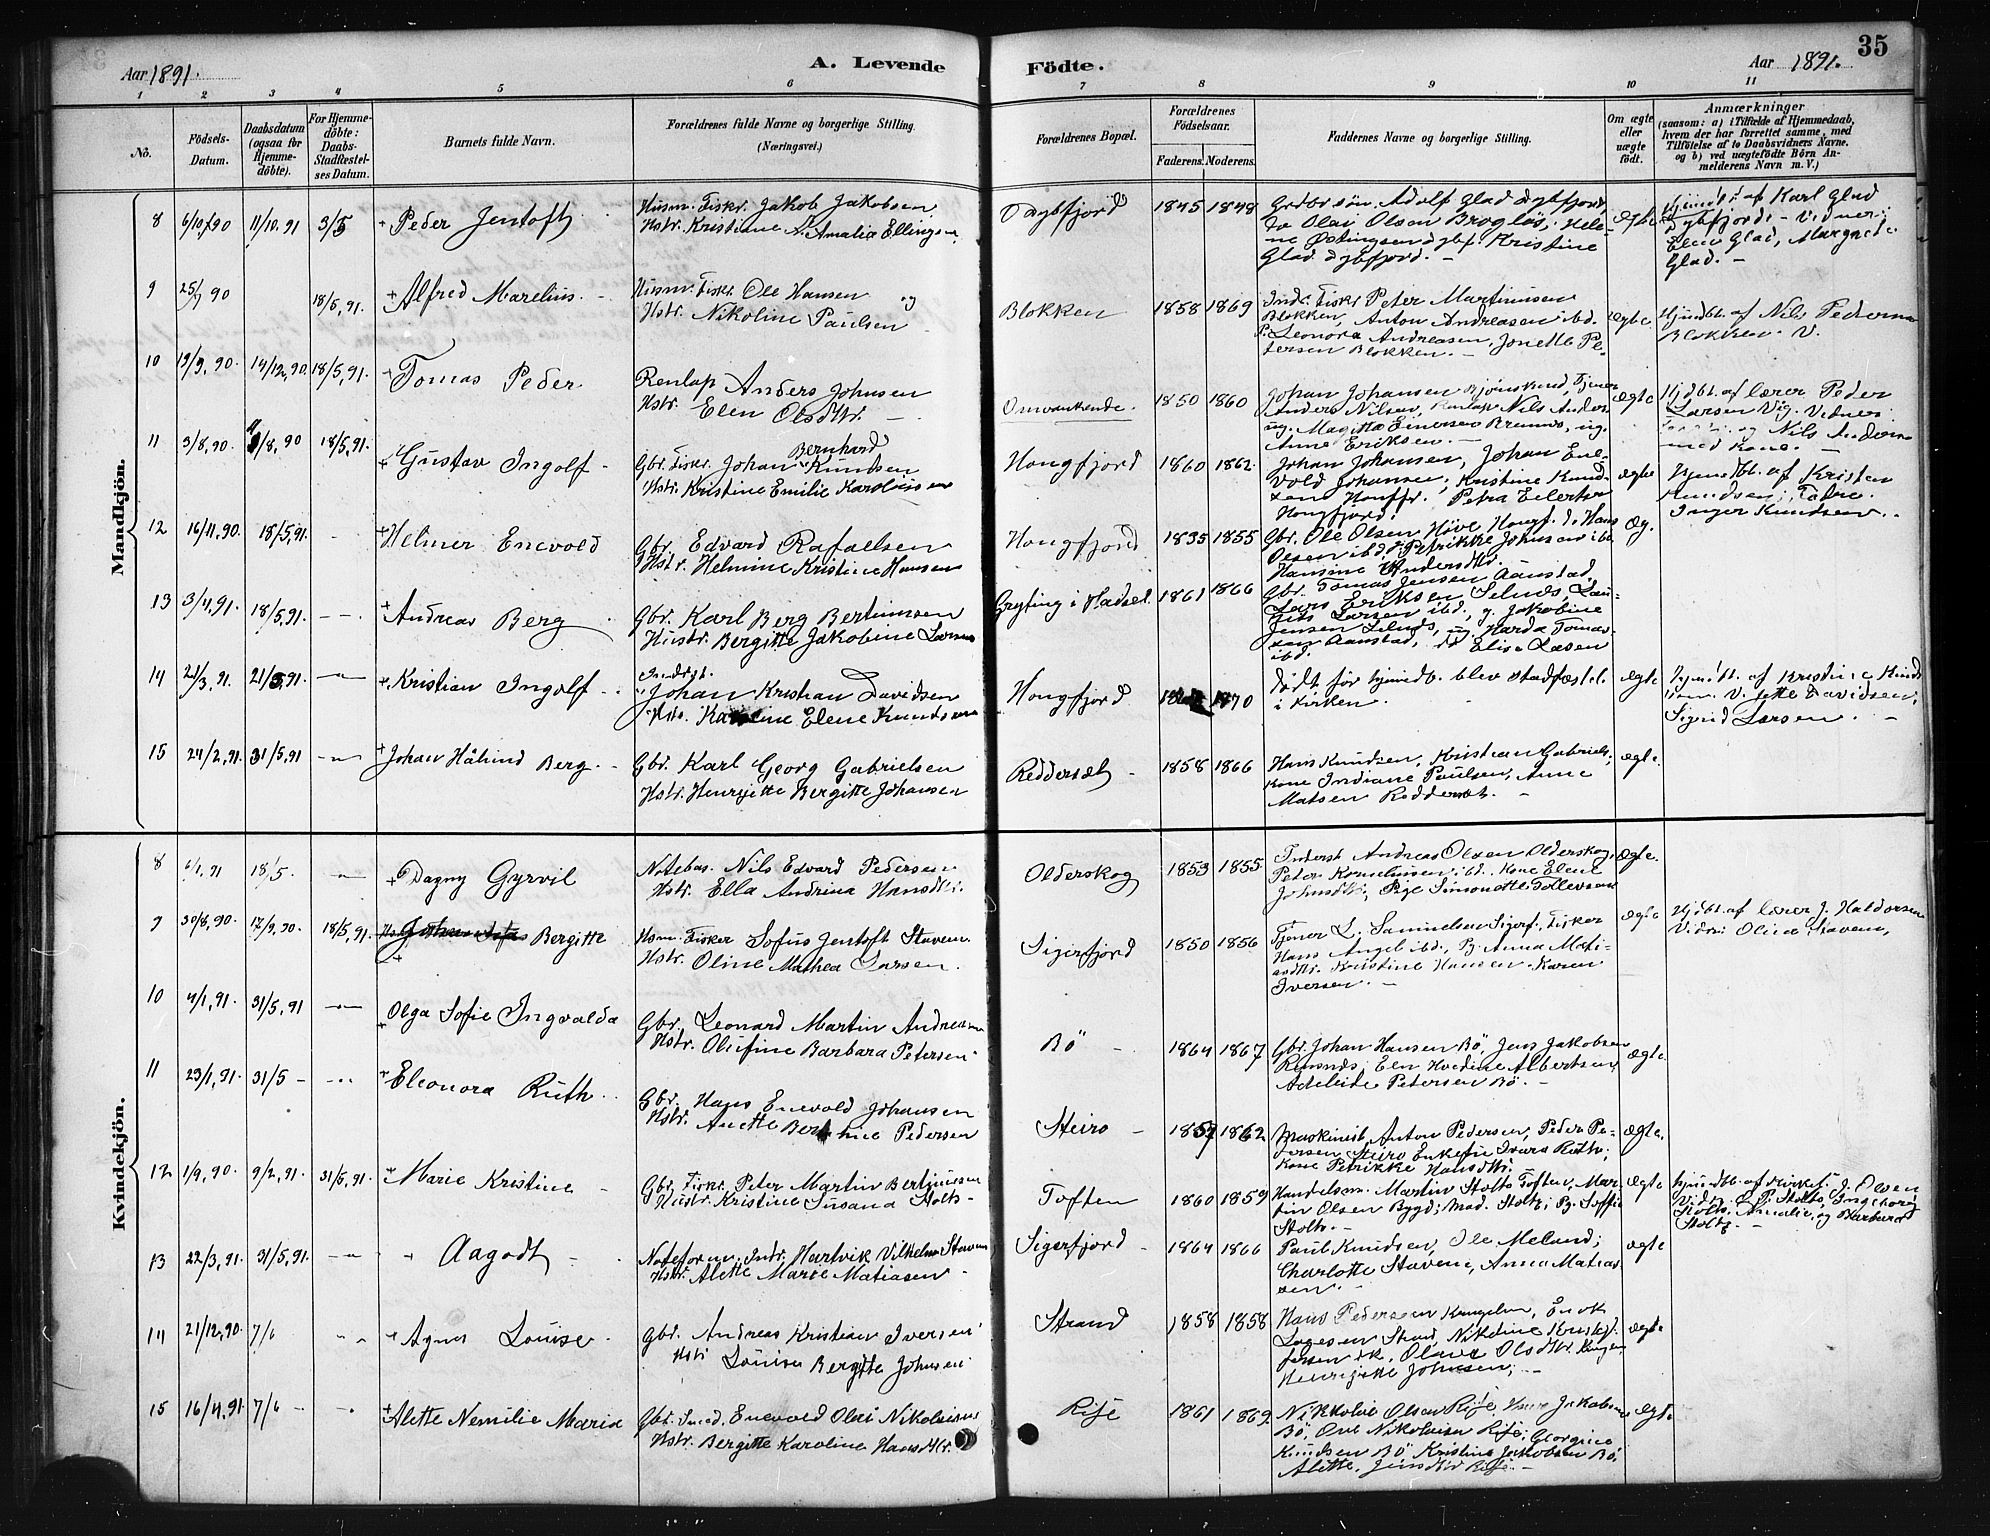 Aar 1891.
A. Levende
Födte.
Aar 1891.
35
1
2
3
4
5
6
7
8
9
10
11
No.
Födsels-
Datum.
Daabsdatum
(ogsaa for
Hjemme-
döbte).
For Hjemme-
döbte:
Daabs-
Stadfæstel-
ses Datum.
Barnets fulde Navn.
Forældrenes fulde Navne og borgerlige Stilling.
(Næringsvei.)
Forældrenes Bopæl.
Forældrenes
Födselsaar.
Faderens.
Moderens.
Faddernes Navne og borgerlige Stilling.
Om ægte
eller
uægte
födt.
Anmærkninger
(saasom: a) i Tilfælde af Hjemmedaab,
hvem der har forrettet samme, med
Tilföielse af to Daabsvidners Navne.
og b) ved uægtefödte Börn An-
melderens Navn m. V.)
Mandkjön.
8 6/10 90 11/10. 91 3/5 Peder Jentoft
Husm. Fiskr. Jakob Jakobsen
Hstr. Kristiane N. Amalia Ellingsen
Dybfjord 1845 1848
Adolf Glad Dybfjord
Olai Olsen
Kristine
Glad Dybfjord. -
ægte
af Karl Glad
Dybfjord - Vidner:
Elen Glad, Margrete
Glad. -
9 25/7 90 18/5, 91. Alfred Marelius. -
Husm. Fiskr. Ole Hansen og
Hstr. Nikoline Paulsen
Blokken 1858 1869
Indr. Fiskr Peter Martinusen
Blokken, Anton Andreasen ibd.
P. Leonora Andreasen, Jonette Pe-
tersen Blokken. -
ægte.
Hjmdbt. af Nils Pedersen
Blokken. V.
10 19/9, 90. 14/12, 90. 18/5, 91. Tomas Peder
Renlap Anders Johnsen
Hstr. Elen Olsdtr. -
Omvankende. 1850 1860
Johan Johansen Bjørnsund, Tjener
Anders Nilsen, Renlap Nils Anders.
Anne Eriksen. -
ægte
Hjdbt. af lærer Peder
Larsen Vig. Vidner
og Nils Andersen
med kone. -
11 3/8, 90. /8, 90 18/5, 91. Gustav Ingolf -
Bernhard
Gbr. Fiskr. Johan Knudsen
Hstr. Kristine Emilie Karoliussen
Hongfjord 1860 1862.
Johan Johansen, Johan Ene-
vold Johansen, Kristine Knud-
sen Hongfjr. Petra Eilertsen
Hongfjord.
ægte
Hjemdbt. af Kristen
Knudsen; Fadre.
Inger Knudsen.
12 16/11, 90. 18/5, 91. - Helmer Enevold
Gbr. Edvard Rafaelsen
Hstr. Helmine Kristine Hansen
Hongfjord 1835 1855
Gbr. Ole Olsen Høve Hongf. do Hans
Olsen ibd, Petrikke Johnsen ibd.
Hansine Andersdtr.
Æg.
13 3/4, 91. 18/5, 91. - Andreas Berg
Gbr. Karl Berg Bertinusen
Hustr. Bergitte Jakobine Larsen
Gryting i Hadsel. 1861 1866
Gbr. Tomas Jensen Aanstad,
Lars Eriksen Selnes, Lau-
rits Larsen ibd., g. Jakobine
Jensen Selnes, ug. Harda Tomas-
sen Aanstad, Elise Larsen
ibd.
14 21/3, 91. 21/3, 91 - Kristian Ingolf.
Inderst.
Johan Kristian Davidsen
Hstr. Karoline Elene Knudsen
Hongfjord 1870
Født før hjemdb. blev stadfæstet
i kirken.
ægte
Hjmdbt. af Kristine Knud-
sen. V. Jette Davidsen,
Sigrid Larsen. -
15 24/2, 91. 31/5, 91 - Johan Håkind Berg. -
Gbr. Karl Georg Gabrielsen
Hstr. Henrijette Bergitte Johansen
Reddersæt - 1858 1866
Hans Knudsen, Kristian Gabriels.
kone Indiane Paulsen, Anne
Matsen Reddersæt. -
ægte.
Kvindekjön.
8 6/1, 91 18/5 - Dagny Gyrvil
Notebas. Nils Edvard Pedersen
Hstr. Ella Andrina Hansdtr.
Olderskog 1853 1855.
Inderst Andreas Olsen Olderskog,
Peter Kornelinsen ibd. Kone Elene
Johnsdtr, Pige Simonette Tollevsen
ægte.
9 30/8, 90. 17/9, 90. 18/5, 91. Bergitte
Hsm. Fisker Sofus Jentoft Staven
Hstr. Oline Mathea Larsen.
Sigerfjord 1850 1856
Tjener L. Samuelsen Sigerf. Fisker
Hans Angel ibd., Pg. Anna Mati-
asdtr. Kristine Hansen. Karen
Iversen. -
ægte
Hjdbt. af lærer J. Haldorsen
Vidn: Olina Staven,
10 4/1, 91. 31/5, 91 - Olga Sofie Ingvalda
Gbr. Leonard Martin Andreasen
Hstr. Olufine Barbara Petersen
Bö - 1864 1867
Gbr. Johan Hansen Bö, Jens Jakobsen
Rensnæs, Elen Hvedine Albertsen,
Adeleide Petersen Bö. -
ægte.
11 23/1, 91. 31/5 - Eleonora Ruth.
Gbr. Hans Enevold Johansen
Hstr. Anette Bertine Pedersen
Steiro - 1857 1862
Maskinist Anton Pedersen, Peder Pe-
dersen Steiro Enkefru Ivara Ruth,
Kone Petrikke Hansdtr.
ægte.
12 1/9, 90. 9/2, 91. 31/5, 91. Marie Kristine -
Gbr. Fiskr. Peter Martin Bertinusen
Hustr. Kristine Susana Stolts -
Toften 1860 1859
Handelsm. Martin Stolts Toften, Mar-
tin Olsen Bygd; Mad. Stolts; Pg. Soffie
Stolts. -
ægte
Hjemdbt. af kirkes. J. Owen
Vidn. P. Stolts, Ingeborg
Stolts. Amalie og Barbara
Stolts. -
13 22/3, 91. 31/5, 91. - Aagodt -
Noteforan. Indr. Hartvik Vilhelm Staven
Hstr. Alette Marie Matiasen -
Sigerfjord - 1864 1866
Paul Knudsen, Ole Meland;
Charlotte Staven, Anna Matias-
sen. -
ægte
14 21/12, 90. 7/6 Agnes Louise.
Gbr. Andreas Kristian Iversen
Hstr Louise Bergitte Johnsen
Strand 1858 1858
Hans Pedersen Kongelsn, Enok
Larsen Strand, Nikoline Kristof-
fersen, Olava Olsdtr.
Henrijette Johnsen. -
ægte
15 16/4, 91 7/6 - Alette Nemilie Maria
Gbr. Smed. Enevold Olai Nikolaisen
Hstr. Bergitte Karoline Hansdtr.
Risje 1861 1869.
Nikkolai Olsen Risje, Hans Jakobsen
Bö, Ove Nikolaisen Risje; Georgine
Knudsen Bö, Kristine Jakobsen Bö,
Alette Jensdtr Risje. -
ægte